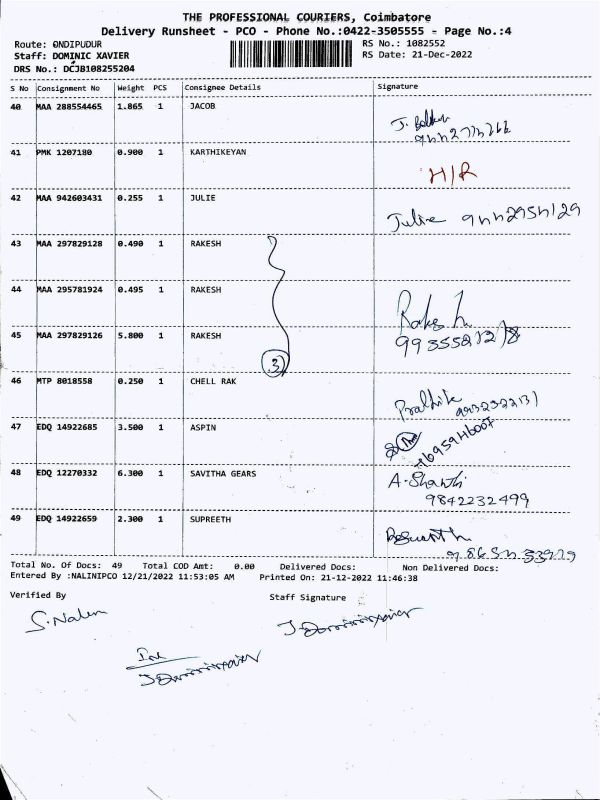 THE PROFESSIONAL COURIERS, Coimbatore
Delivery Runsheet - PCO - Phone No.:0422-3505555 - Page No.:4
Route: ONDIPUDUR RS No.: 1082552
Staff: DOMINIC XAVIER RS Date: 21-Dec-2022
DRS No.: DCJB108255204
S No Consignment No Weight PCS Consignee Details Signature
40 MAA 288554465 1.865 1 JACOB
41 PMK 1207180 0.900 1 KARTHIKEYAN H/R
42 MAA 942603431 0.255 1 JULIE Julie
43 MAA 297829128 0.490 1 RAKESH
44 MAA 295781924 0.495 1 RAKESH Rakesh
45 MAA 297829126 5.800 1 RAKESH 3
46 MTP 8018558 0.250 1 CHELL RAK
47 EDQ 14922685 3.500 1 ASPIN
48 EDQ 12270332 6.300 1 SAVITHA GEARS A. Shanthi
9842232499
49 EDQ 14922659 2.300 1 SUPREETH
Total No. Of Docs: 49 Total COD Amt: 0.00 Delivered Docs: Non Delivered Docs:
Entered By :NALINIPCO 12/21/2022 11:53:05 AM Printed On: 21-12-2022 11:46:38
Verified By Staff Signature